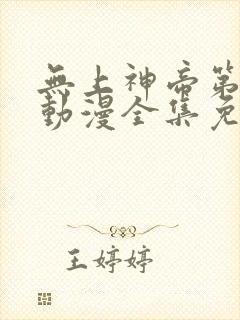 無上神帝第
動漫全集免
王婷婷